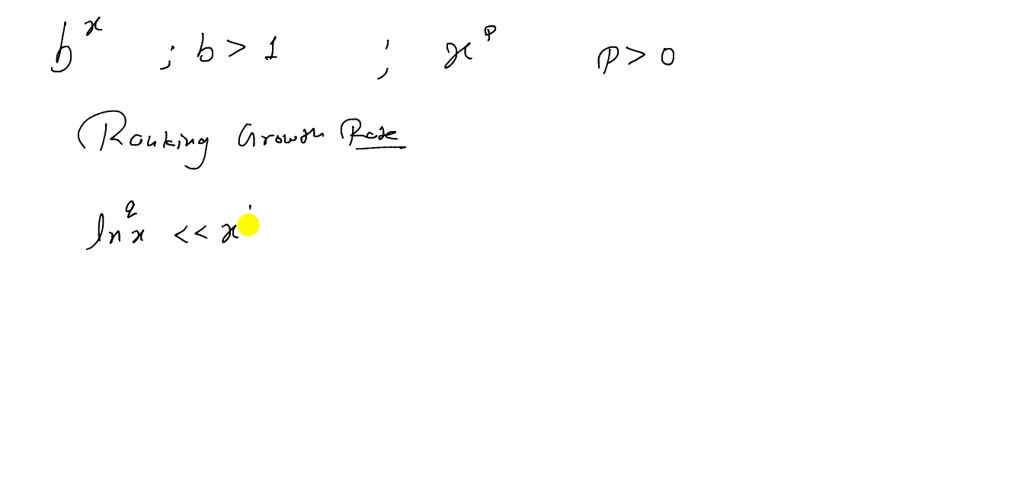 b^x ; b > 1 ; x^p p > 0
Ranking Growth Rate
ln^q x << x